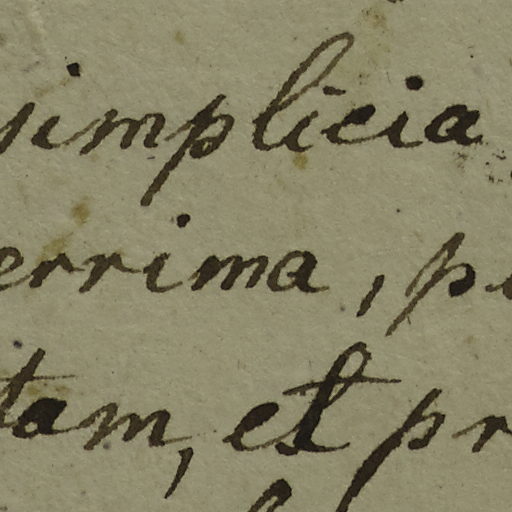 simplicia
errima, p
tam, et pr